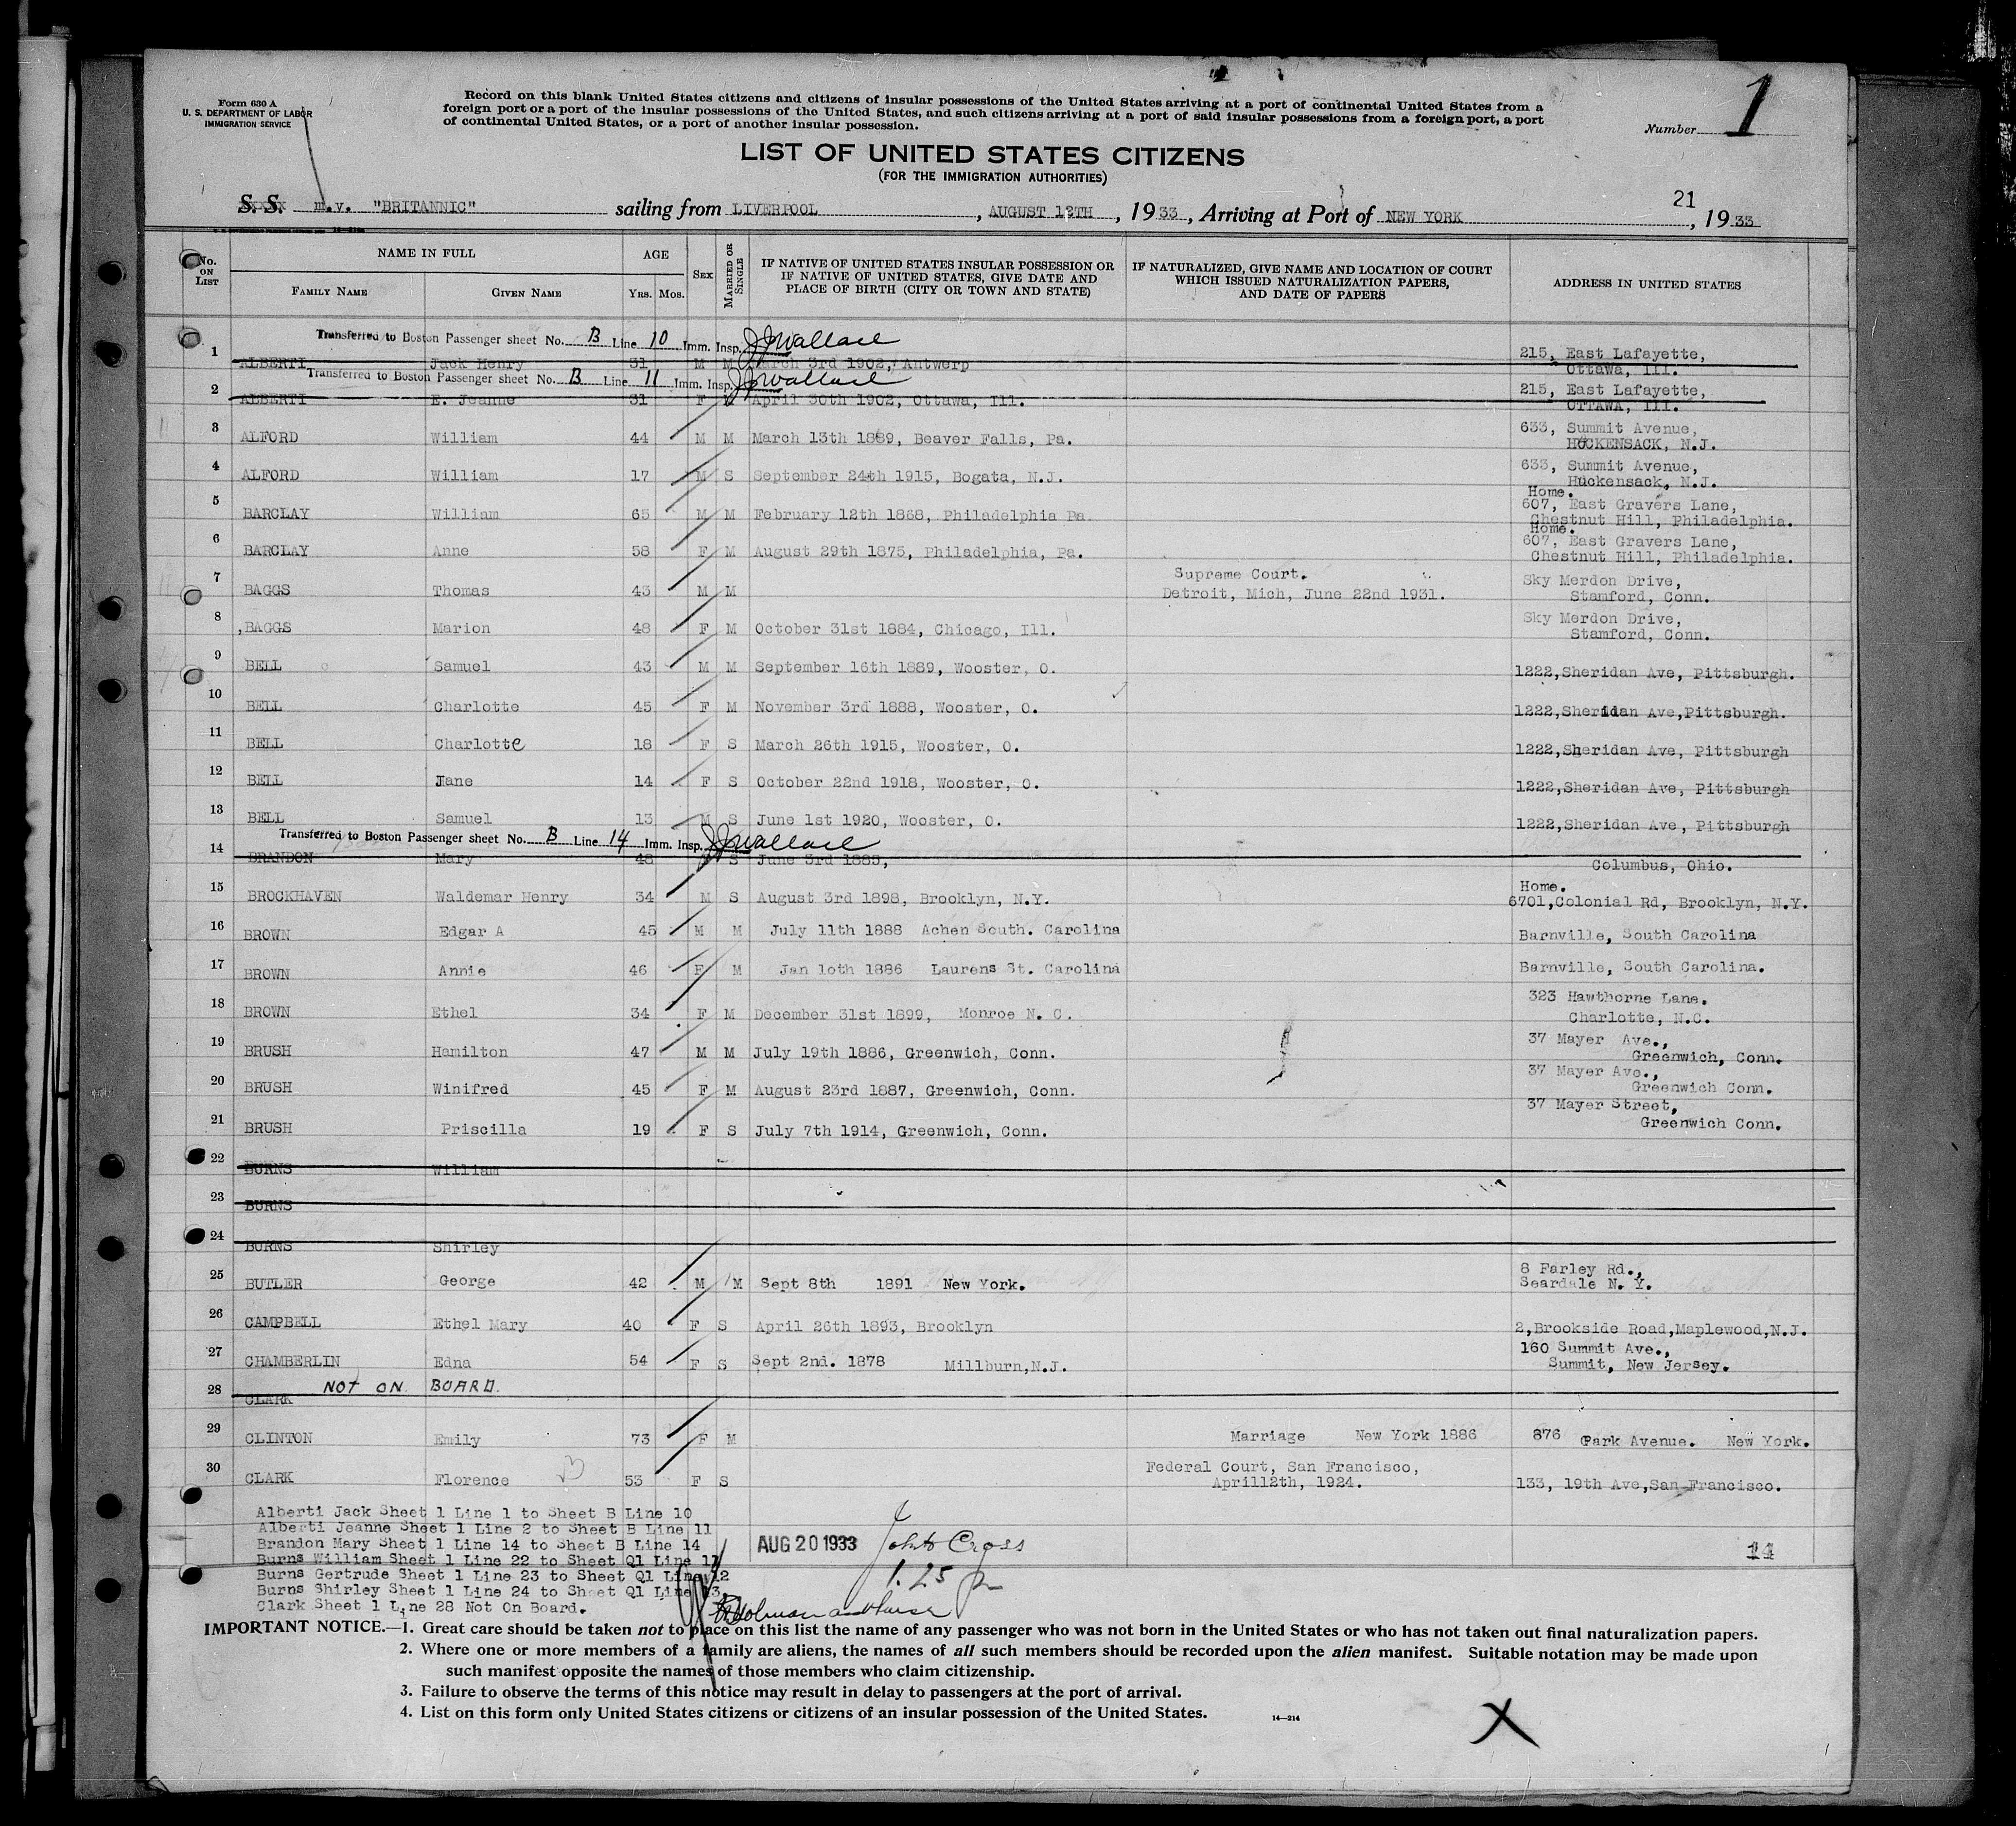 Form 630 A
U. S. DEPARTMENT OF LABOR
IMMIGRATION SERVICE
Record on this blank United States citizens and citizens of insular possessions of the United States arriving at a port of continental United States from a
foreign port or a port of the insular possessions of the United States, and such citizens arriving at a port of said insular possessions from a foreign port, a port
of continental United States, or a port of another insular possession.
Number 1
LIST OF UNITED STATES CITIZENS
(FOR THE IMMIGRATION AUTHORITIES)
S. S. m.v. "BRITANNIC" sailing from LIVERPOOL, AUGUST 12TH, 1933, Arriving at Port of NEW YORK 21, 1933
No. on List NAME IN FULL AGE Sex Married or Single IF NATIVE OF UNITED STATES INSULAR POSSESSION OR IF NATIVE OF UNITED STATES, GIVE DATE AND PLACE OF BIRTH (CITY OR TOWN AND STATE) IF NATURALIZED, GIVE NAME AND LOCATION OF COURT WHICH ISSUED NATURALIZATION PAPERS, AND DATE OF PAPERS ADDRESS IN UNITED STATES
Family Name Given Name Yrs. Mos.
Transferred to Boston Passenger sheet No. B Line 10 Imm. Insp. JJWallace
1 ALBERTI Jack Henry 31 M M March 3rd 1902, Antwerp 215, East Lafayette,
Ottawa, Ill.
Transferred to Boston Passenger sheet No. B Line 11 Imm. Insp. JJWallace
2 ALBERTI E. Jeanne 31 F M April 30th 1902, Ottawa, Ill. 215, East Lafayette,
OTTAWA, Ill.
3 ALFORD William 44 M M March 13th 1889, Beaver Falls, Pa. 633, Summit Avenue,
HUCKENSACK, N.J.
4 ALFORD William 17 M S September 24th 1915, Bogata, N.J. 633, Summit Avenue,
Huckensack, N.J.
Home.
5 BARCLAY William 65 M M February 12th 1868, Philadelphia Pa. 607, East Gravers Lane,
Chestnut Hill, Philadelphia.
Home.
6 BARCLAY Anne 58 F M August 29th 1875, Philadelphia, Pa. 607, East Gravers Lane,
Chestnut Hill, Philadelphia.
7 BAGGS Thomas 43 M M Supreme Court.
Detroit, Mich, June 22nd 1931. Sky Merdon Drive,
Stamford, Conn.
8 BAGGS Marion 48 F M October 31st 1884, Chicago, Ill. Sky Merdon Drive,
Stamford, Conn.
9 BELL Samuel 43 M M September 16th 1889, Wooster, O. 1222,Sheridan Ave, Pittsburgh.
10 BELL Charlotte 45 F M November 3rd 1888, Wooster, O. 1222,Sheridan Ave,Pittsburgh.
11 BELL Charlotte 18 F S March 26th 1915, Wooster, O. 1222,Sheridan Ave, Pittsburgh
12 BELL Jane 14 F S October 22nd 1918, Wooster, O. 1222,Sheridan Ave, Pittsburgh
13 BELL Samuel 13 M S June 1st 1920, Wooster, O. 1222,Sheridan Ave, Pittsburgh
Transferred to Boston Passenger sheet No. B Line 14 Imm. Insp. JJWallace
14 BRANDON Mary 48 F S June 3rd 1885, Columbus, Ohio.
15 BROCKHAVEN Waldemar Henry 34 M S August 3rd 1898, Brooklyn, N.Y. Home.
6701,Colonial Rd, Brooklyn, N.Y.
16 BROWN Edgar A 45 M M July 11th 1888 Achen South. Carolina Barnville, South Carolina
17 BROWN Annie 46 F M Jan 10th 1886 Laurens St. Carolina Barnville, South Carolina.
18 BROWN Ethel 34 F M December 31st 1899, Monroe N. C. 323 Hawthorne Lane.
Charlotte, N.C.
19 BRUSH Hamilton 47 M M July 19th 1886, Greenwich, Conn. 37 Mayer Ave.,
Greenwich, Conn.
20 BRUSH Winifred 45 F M August 23rd 1887, Greenwich, Conn. 37 Mayer Ave.,
Greenwich Conn.
21 BRUSH Priscilla 19 F S July 7th 1914, Greenwich, Conn. 37 Mayer Street,
Greenwich Conn.
22 BURNS William
23 BURNS
24 BURNS Shirley
25 BUTLER George 42 M M Sept 8th 1891 New York. 8 Farley Rd.,
Seardale N. Y.
26 CAMPBELL Ethel Mary 40 F S April 26th 1893, Brooklyn 2,Brookside Road,Maplewood,N.J.
27 CHAMBERLIN Edna 54 F S Sept 2nd. 1878 Millburn,N.J. 160 Summit Ave.,
Summit, New Jersey.
NOT ON BOARD.
28 CLARK
29 CLINTON Emily 73 F M Marriage New York 1886 876 Park Avenue. New York.
30 CLARK Florence 53 F S Federal Court, San Francisco,
April12th, 1924. 133, 19th Ave,San Francisco.
Alberti Jack Sheet 1 Line 1 to Sheet B Line 10
Alberti Jeanne Sheet 1 Line 2 to Sheet B Line 11
Brandon Mary Sheet 1 Line 14 to Sheet B Line 14
Burns William Sheet 1 Line 22 to Sheet Q1 Line 11
Burns Gertrude Sheet 1 Line 23 to Sheet Q1 Line 12
Burns Shirley Sheet 1 Line 24 to Sheet Q1 Line 13
Clark Sheet 1 Line 28 Not On Board.
AUG 20 1933 John Cross
1.25
14
IMPORTANT NOTICE.—1. Great care should be taken not to place on this list the name of any passenger who was not born in the United States or who has not taken out final naturalization papers.
2. Where one or more members of a family are aliens, the names of all such members should be recorded upon the alien manifest. Suitable notation may be made upon
such manifest opposite the names of those members who claim citizenship.
3. Failure to observe the terms of this notice may result in delay to passengers at the port of arrival.
4. List on this form only United States citizens or citizens of an insular possession of the United States.
14—214
X